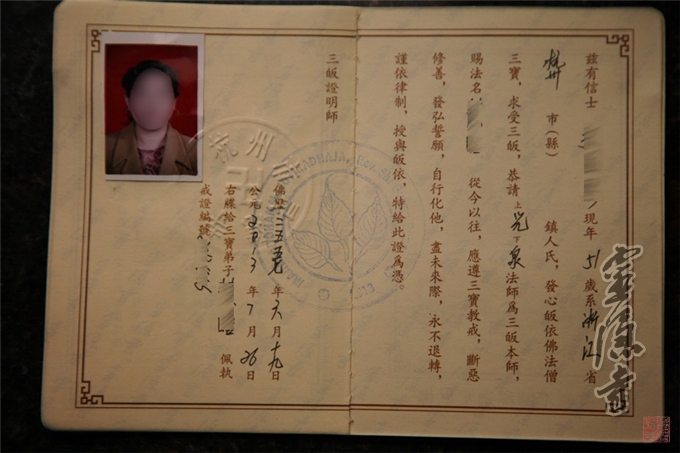 茲有信士 現年 51 歲系 浙江 省
市(縣) 鎮人氏，發心皈依佛法僧
三寶，求受三皈，恭請 上光下泉 法師為三皈本師，
賜法名 從今以往，應遵三寶教戒，斷惡
修善，發弘誓願，自行化他，盡未來際，永不退轉，
謹依律制，授與皈依，特給此證為憑。
三皈證明師
佛曆 二五五七 年 六 月 十九 日
公元 年 7 月 26 日
右牒給三寶弟子 佩執
戒證編號
杭州
靈隱寺